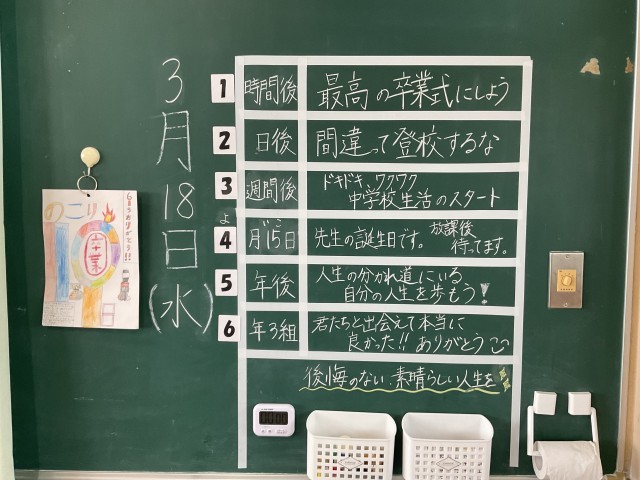 3月18日(水)
1 時間後 最高の卒業式にしよう
2 日後 間違って登校するな
3 週間後 ドキドキ、ワクワク
中学校生活のスタート
よ
4 月15日 先生の誕生日です。放課後
待ってます。
5 年後 人生の分かれ道にいる
自分の人生を歩もう!
6 年3組 君たちと出会えて本当に
良かった!! ありがとう
後悔のない素晴らしい人生を
のこり
10日
卒業
6年間ありがとう!!